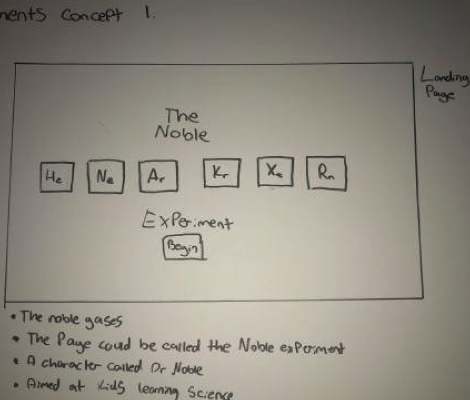 ments Concept 1.
Landing
Page
The
Noble
He Ne Ar Kr Xe Rn
Experiment
Begin
• The noble gases
• The Page could be called the Noble experiment
• A character called Dr Noble
• Aimed at Kids learning Science